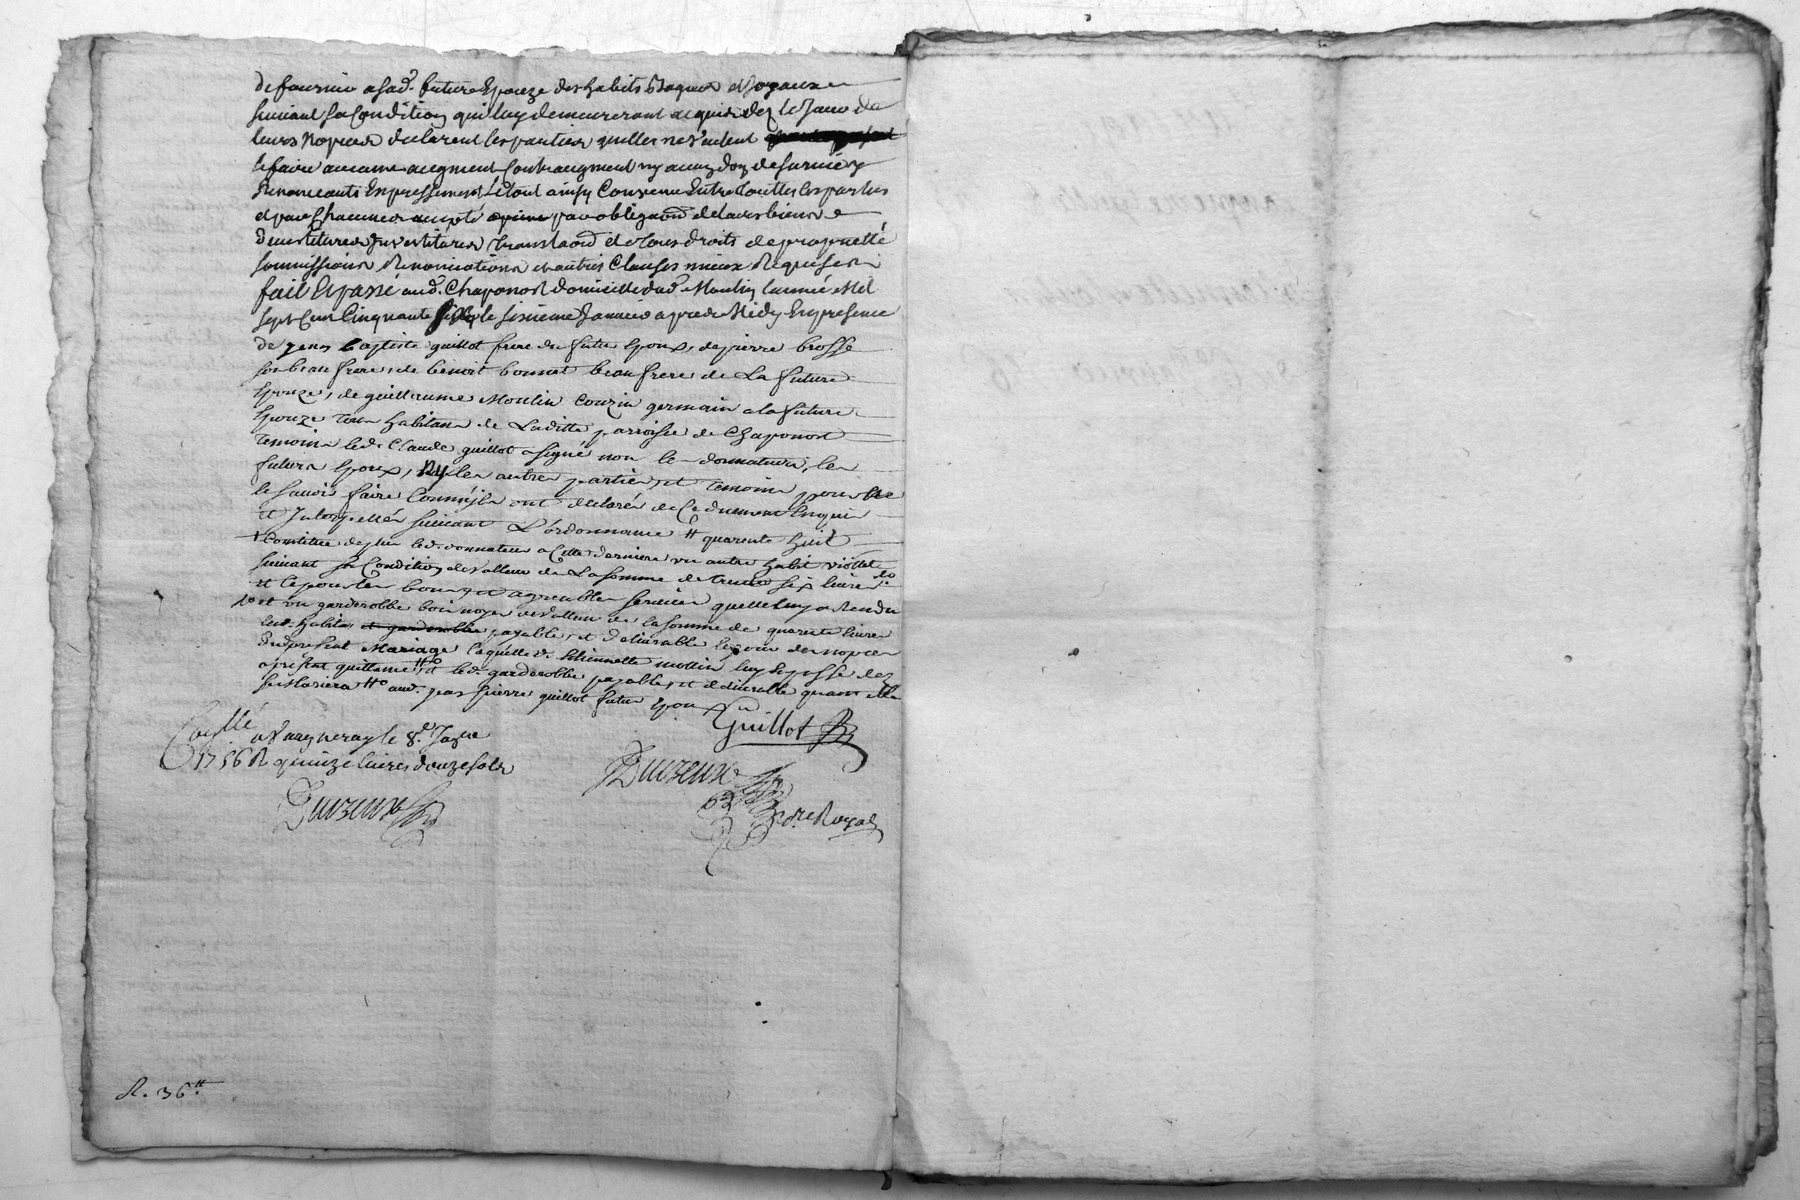 de fournir a sad. future Epouze des habits Bagues et Joyaux
suivant sa Condition qui luy demeureront acquis dez le Jour de
leurs Nopces declarent les parties quelles ne veulent
se faire aucune augment Contraugment ny aucun don de survie y
Renonceants Expressement Letout ainsy Convenu Entre Toutes les parties
et par Chacunes accepté par obligaon de leurs biens
Devestitures Investitures translaon de tous droits de propriette
soumissions Renonciations et autres Clauses mieux Requises
fait Et passé aud. Chaponost domicille dud. Moulin Lannée Mil
sept Cent Cinquante six le sixieme Janvier apres Midy En presence
de jean baptiste guillot frere du futur Epoux, de pierre brosse
son beau frere, de benoit bonnet beau frere de La future
Epouze, de guillaume Moulin Couzin germain a la future
Epouze Tous habitans de Laditte parroisse de Chaponost
Temoins led. Claude guillot a signé non le donnateur, les
futurs Epoux, Ny les autres parties et temoins pour ne
le scavoir faire Comme jls ont declarés de Ce duement Enquis
et Interpellés suivant L'ordonnance # quarente huit
+ Constitue de plus led. donnateur a Cette derniere un autre habit viollet
suivant sa Condition de Valleur de La somme de trente six livres
et Ce pour les bons et agreables services quelle luy a Rendu
et un garderobbe bois noyer de Valleur de la somme de quarente livres
led. habits et garderobbe payable, et delivrable le jour des nopces
dud present Mariage laquelle d. Estiennette mollin luy En passe dez
a present quittance # et led. garderobbe payable, et delivrable quant Elle
se Mariera # aud. jean pierre guillot futur Epoux
Guillot
Conllé a Vaugneray le 8.e Janer
1756 R quinze livres douze sols
Duvzeux
Duvzeux
No.re Royal
R. 36 #